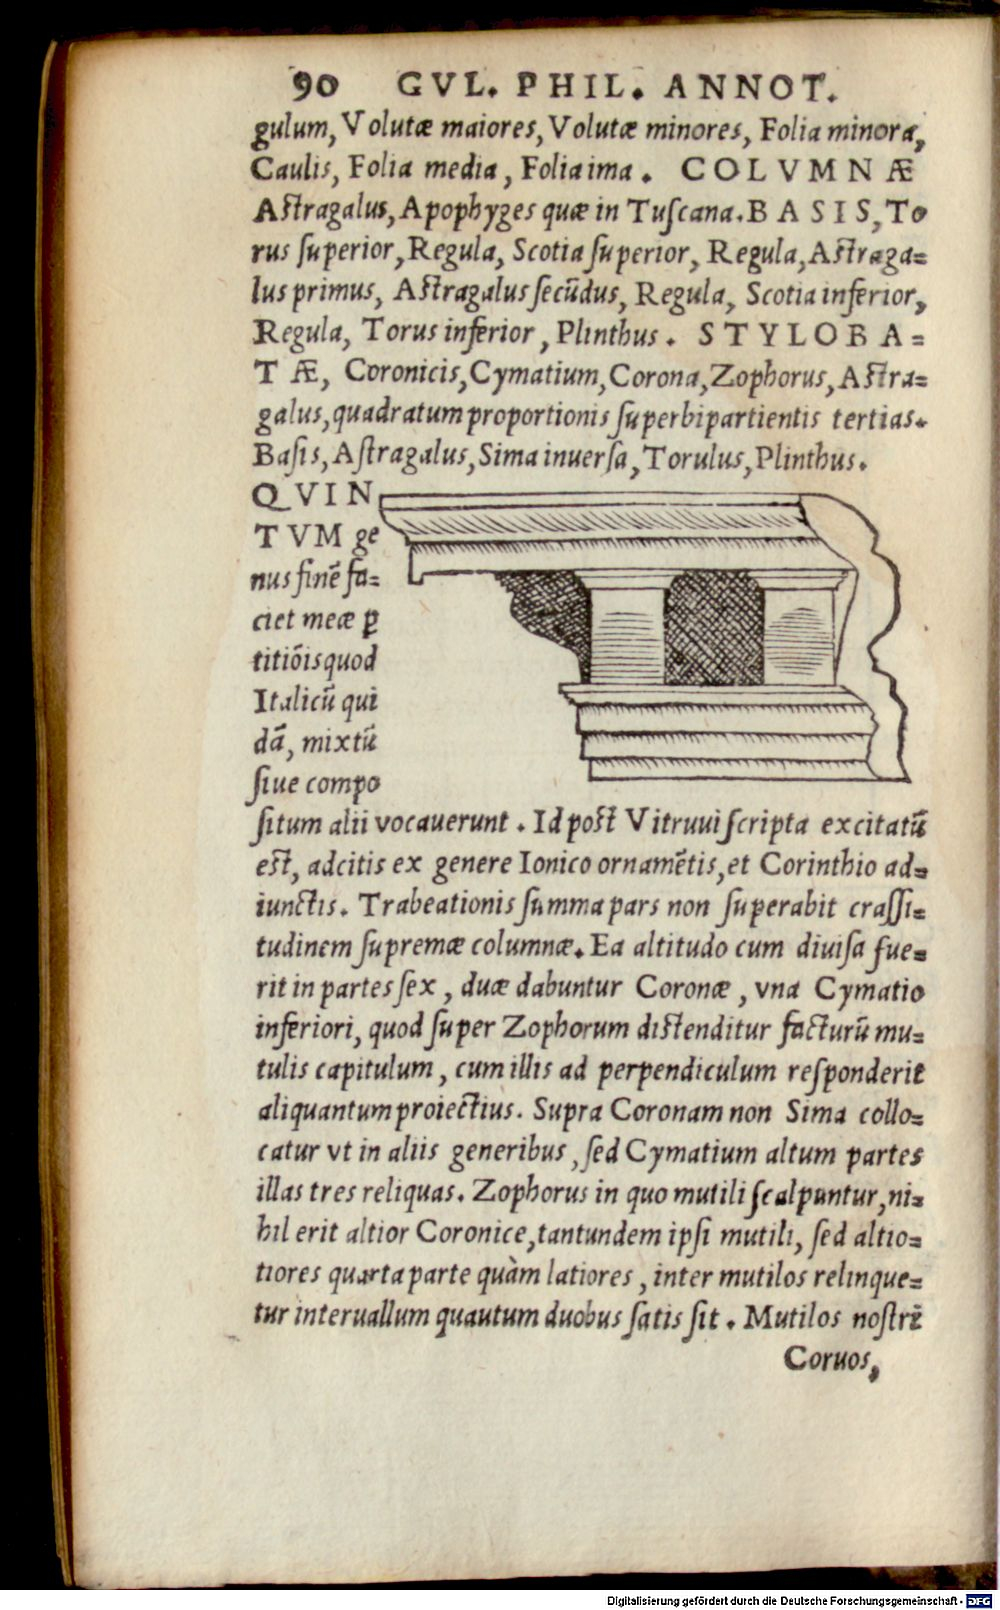 90 GVL. PHIL. ANNOT.
gulum, Volutæ maiores, Volutæ minores, Folia minora,
Caulis, Folia media, Folia ima. COLVMNÆ
Aſtragalus, Apophyges quæ in Tuſcana. BASIS, To
rus ſuperior, Regula, Scotia ſuperior, Regula, Aſtraga=
lus primus, Aſtragalus ſecūdus, Regula, Scotia inferior,
Regula, Torus inferior, Plinthus. STYLOBA=
TÆ, Coronicis, Cymatium, Corona, Zophorus, Aſtra=
galus, quadratum proportionis ſuperbipartientis tertias.
Baſis, Aſtragalus, Sima inuerſa, Torulus, Plinthus.
QVIN
TVM ge
nus finē fa=
ciet meæ ꝑ
titiōis quod
Italicū qui
dā, mixtū
ſiue compo
ſitum alii vocauerunt. Id poſt Vitruui ſcripta excitatū
eſt, adcitis ex genere Ionico ornamētis, et Corinthio ad=
iunctis. Trabeationis ſumma pars non ſuperabit craſſi=
tudinem ſupremæ columnæ. Ea altitudo cum diuiſa fue=
rit in partes ſex, duæ dabuntur Coronæ, vna Cymatio
inferiori, quod ſuper Zophorum diſtenditur facturū mu=
tulis capitulum, cum illis ad perpendiculum reſponderit
aliquantum proiectius. Supra Coronam non Sima collo=
catur vt in aliis generibus, ſed Cymatium altum partes
illas tres reliquas. Zophorus in quo mutili ſcalpuntur, ni=
hil erit altior Coronice, tantundem ipſi mutili, ſed altio=
tiores quarta parte quàm latiores, inter mutilos relinque=
tur interuallum quautum duobus ſatis ſit. Mutilos noſtri
Coruos,
Digitalisierung gefördert durch die Deutsche Forschungsgemeinschaft - DFG